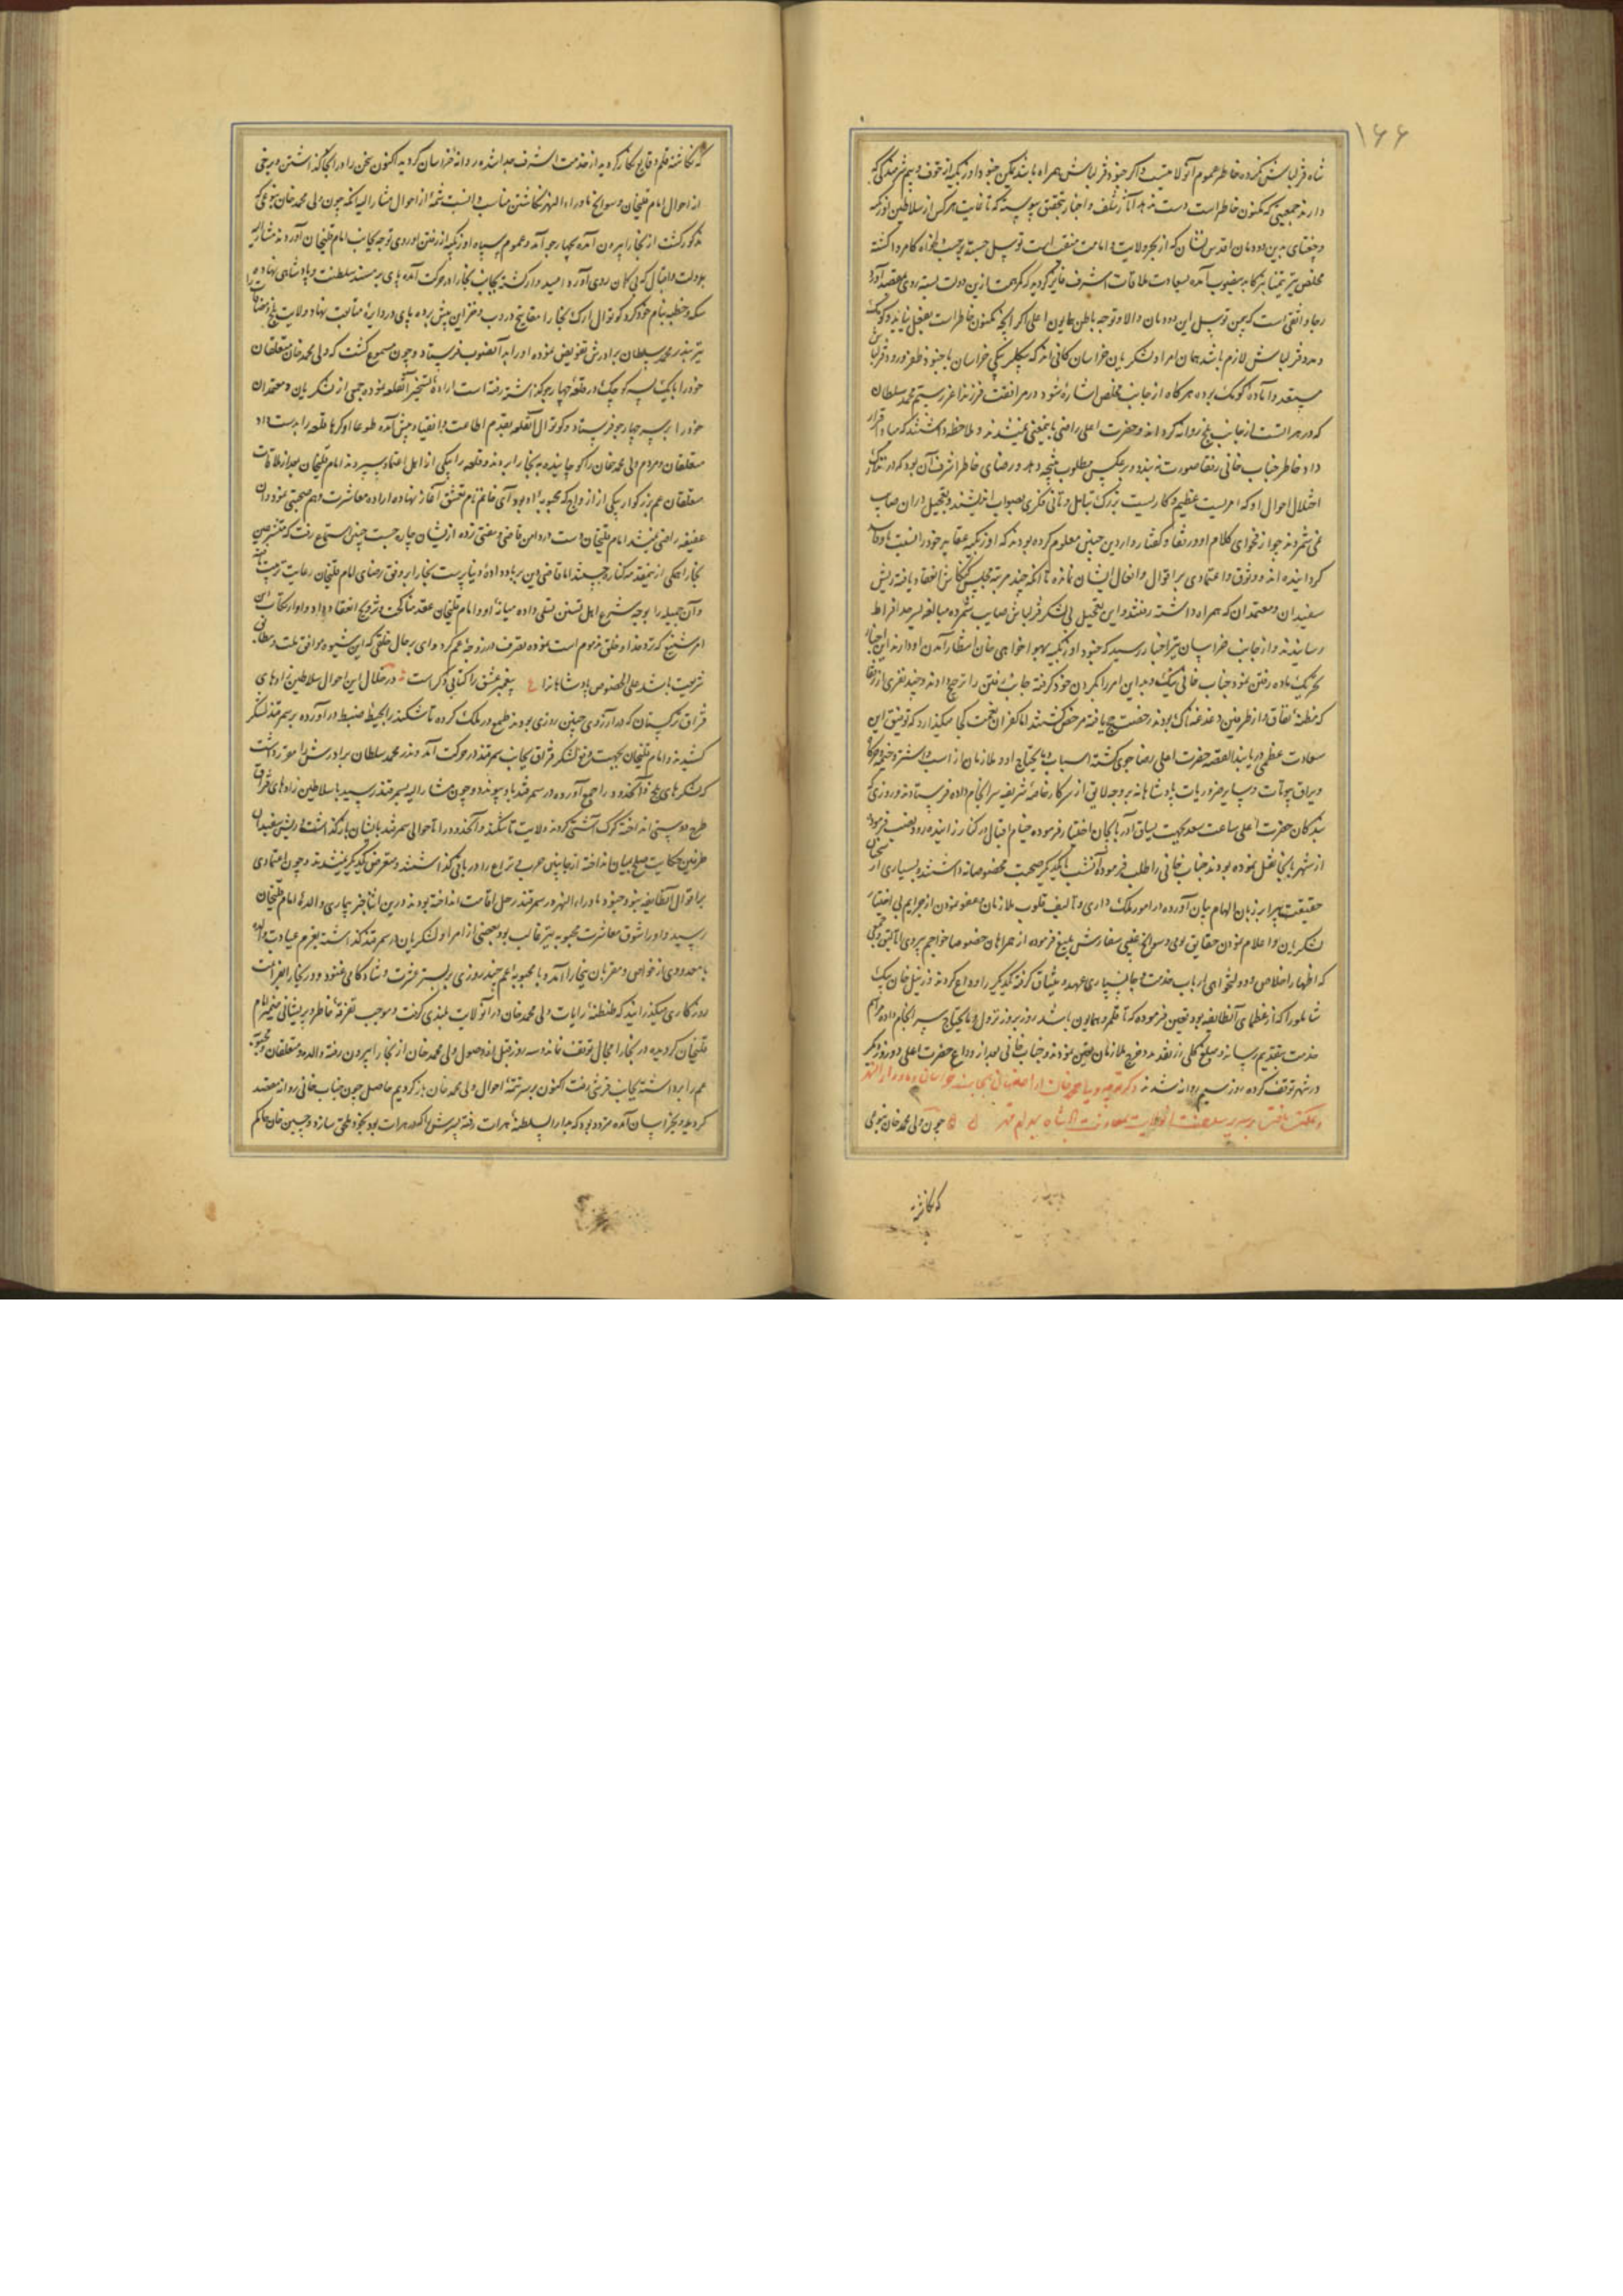 ۱۶۶
شاه قزلباش نکرده خاطر عموم آنولایتست و اگر جنود قزلباش همراه باشد یمکن جنود اوزبکیه از خوف و بیم شرمندگی که
دارند جمعیتی که مکنون خاطر است دست ندهد از سلف و اخبار بتحقق پیوسته که تا غایت هر کس از سلاطین اوزبک
و چغتای بدین دودمان اقدس نشان که از بحر ولایت و امامت منشعب است توسل جسته بر حسب دلخواه کامروا گشته
مخلص نیز بدینصوب آمده بسعادت ملاقات اشرف فایز گردیده که کمر همت ازین دولت بسته روی بمقصد آورد
رجا واثقست که بیمن توسل این دودمان والا و توجه باطن همایون اعلی اکر آنچه مکنون خاطر است بفعل نیاید و کومک
و مدد قزلباش لازم باشد همان امرا و لشکریان خراسان کافی اند که بیکلربیکی خراسان با جنود ظفر ورود قزلباش
مستعد و آماده کومک بوده هر گاه از جانب مخلص اشاره شود در مرافقت فرزند اعز رستم محمد سلطان
که در هراتست از جانب بلخ روانه گردانند و حضرت اعلی راضی باینمعنی نمیشدند و ملاحظه داشتند که مبادا قرار
داد خاطر جناب خانی رفقا صورت نه بندد و بر عکس مطلوب نتیجه دهد و رضای خاطر اشرف آن بود که در تدارک
اختلال احوال او که امریست عظیم و کاریست بزرگ بتأمل و تأنی فکری بصواب اندیشند و تعجیل در آن صلاح
نمی شمردند چو از فحوای کلام او و رفقا و گفتار واردین چنین معلوم کرده بودند که اوزبکیه بمقابر خود رافضیت
گردانیده اند و وثوق و اعتمادی بر اقوال و افعال ایشان نمانده تا آنکه چند مرتبه مجلس کنکاش انعقاد یافته ریش
سفیدان و معتمدان که همراه داشته رفتند و این تعجیل بی لشکر قزلباش صایب شمرده مبالغه بسرحد افراط
رسانیدند و از جانب خراسان نیز اخبار رسید که جنود اوزبکیه بهوا خواهی خان انتظار آمدن او دارند این اخبار
سعادت عظمی دریابند القصه حضرت اعلی رضاجوی گشته اسباب و مایحتاج او و ملازمان از اسب و اشتر و خیمه و خرگاه
و یراق بیوتات و سایر ضروریات پادشاهانه بر وجه لایق از سرکار خاصه شریفه سرانجام داده فرستادند و روزی که
بندگان حضرت اعلی ساعت سعد بجهت یساق آذربایجان اختیار فرموده خیام اقبال در کنار زاینده رود نصب فرموده
از شهر بانجا نقل نموده بودند جناب خانی را طلب فرموده آنشب با یکدیگر صحبت مخصوصانه داشتند و بسیاری از سخنان
حقیقت پیرا بر زبان الهام بیان آورده در امور ملک داری و تألیف قلوب ملازمان و عفو نمودن از جرایم بی اختیار
لشکریان و اعلام نمودن حقایق یومی و سوانح غیبی سفارش بلیغ فرموده از همراهان خصوصا خواجم بردی اتالیق و جمعی
که اظهار اخلاص و دولتخواهی ارباب خدمت و جانسپاری عهد و میثاق گرفته یکدیگر را وداع کردند و زینل خان بیک
شاملو را که از عظمای آنطایفه بود تعیین فرموده که تا قلمرو همایون باشد روز بروز نزول و مایحتاج سرانجام داده مراسم
خدمت بتقدیم رساند و مبلغ کلی از نقد مدد خرج ملازمان تعیین نمودند و جناب خانی بعد از وداع حضرت اعلی دو روز دیگر
در شهر توقف کرده روز سیم روانه شدند ذکر توجه ولی محمد خان از اصفهان بجانب خراسان و ماوراء النهر
چون ولی محمد خان بنوعی
که نگاشته
که نگاشته قلم وقایع نگار گردیده از خدمت اشرف جدا شده روانه خراسان گردید اکنون سخن را در اینجا گذاشتن و برخی
از احوال امام قلیخان و سوانح ماوراء النهر نگاشتن مناسب دانست تتمه از احوال مشار الیه آنکه چون ولی محمد خان بنوعی که
مذکور گشت از بخارا بیرون آمده بچهارجو آمد و عموم سپاه اوزبکیه از رفتن او روی توجه بجانب امام قلیخان آوردند مشار الیه
بدولت و اقبال که بی گمان روی آورده امیدوار گشته بجانب بخارا در حرکت آمده پای بر مسند سلطنت و پادشاهی نهاده
سکه و خطبه بنام خود کرد کوتوال ارک بخارا مفاتیح دروب و خزاین پیش برده پای در دایره متابعت نهاد ولایت بلخ و مضافات را
نیز بنذر محمد سلطان برادرش تفویض نموده او را بدانصوب فرستاد و چون مسموع گشت که ولی محمد خان متعلقان
خود را با یک پسر کوچک در قلعه چهارجو گذاشته رفته است اراده تسخیر آنقلعه نموده جمعی از لشکریان و معتمدان
خود را بر سر چهارجو فرستاد و کوتوال آنقلعه بقدم اطاعت و انقیاد پیش آمده طوعا او کرها قلعه را بدست داد
متعلقان و مردم ولی محمد خان را کوچانیده به بخارا بردند و قلعه را بیکی از اهل اعتماد سپردند امام قلیخان بعد از ملاقات
متعلقان عم بزرگوار بیکی از ازواج که محبوبه او بود آی خانم نام تعشق آغاز نهاده اراده معاشرت و هم صحبتی نمود و آن
عفیفه راضی نمیشد امام قلیخان دست در دامن قاضی و مفتی زده از ایشان چاره جست چنین استماع رفت که متشرعین
بخارا حکی ازینعقد مرکنار جستند اما قاضی دین بر باد داده دنیا پرست بخارا بر وفق رضای امام قلیخان رعایت
و آن جمیله را بوجه شرع اهل تسنن تسلی داده میانه او و امام قلیخان عقد مناکحت و تزویج انعقاد داد و او ارتکاب این
امر شنیع که نزد خدا و خلق مذموم است نموده تصرف در زوجه عم کرد وای بر حال خلقی که این شیوه موافق ملت و مطابق
شریعت باشد علی الخصوص پادشاهانرا ع پیغمبر عشق را کتابی دگر است در خلال این احوال سلاطین زادهای
قزاق ترکستان که در آرزوی چنین روزی بودند طمع در ملک کرده تاشکند را بحیطه ضبط در آورده بر سمرقند لشکر
کشیدند و امام قلیخان بجهت دفع لشکر قزاق بجانب سمرقند در حرکت آمد و نذر محمد سلطان برادرش را مقرر داشت
که لشکرهای بلخ و آنحدود را جمع آورده در سمرقند بدو پیوندد و چون مشار الیه بسمرقند رسید با سلاطین زادهای قزاق
طرح دوستی انداخته گرگ آشتی کردند ولایت تاشکند و آنحدود را تا حوالی سمرقند بایشان باز گذاشت و ریش سفیدان
طرفین حکایت صلح بمیان انداخته از جانبین حرب و نزاع را در باقی گذاشتند و متعرض یکدیگر نمیشدند و چون اعتمادی
بر اقوال آنطایفه نبود جنود ماوراء النهر در سمرقند رحل اقامت انداخته بودند درین اثنا خبر بیماری والده امام قلیخان
رسید و او را شوق معاشرت محبوبه نیز غالب بود بعضی از امرا و لشکریان در سمرقند گذاشته بعزم عیادت والده
با معدودی از خواص و مقربان ببخارا آمد و با محبوبه عم چند روزی بر بستر عشرت و شادکامی غنود و در بخارا بفراغت
روزگاری میگذرانید که طنطنه رایات ولی محمد خان در آنولایت بلندی گرفت و موجب تفرقه خاطر و پریشانی ضمیر امام
قلیخان گردیده در بخارا مجال توقف نمانده سه روز قبل از وصول ولی محمد خان از بخارا بیرون رفته والده و متعلقان و محبوبه
عم را برداشته بجانب قرشی رفت اکنون بر سر تتمه احوال ولی محمد خان باز گردیم حاصل چون جناب خانی روانه مقصد
گردیده بخراسان آمده مردد بود که بدار السلطنه هرات رفته پسرش را که در هرات بود بخود ملحق سازد و حسین خان حاکم